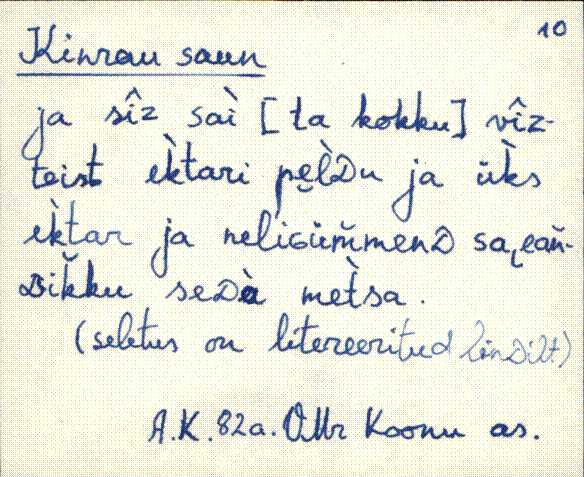 10
Kinrau saun
ja sîz saì [ta kokku] vîz-
teist èktari pe̮ĺDu ja üks
èktar ja neliGüm̆menD sa̮ean̆-
Dik̆ku seDà met̀sa.
(seletus on litereeritud lindilt)
A.K. 82a. OMr Koonu as.